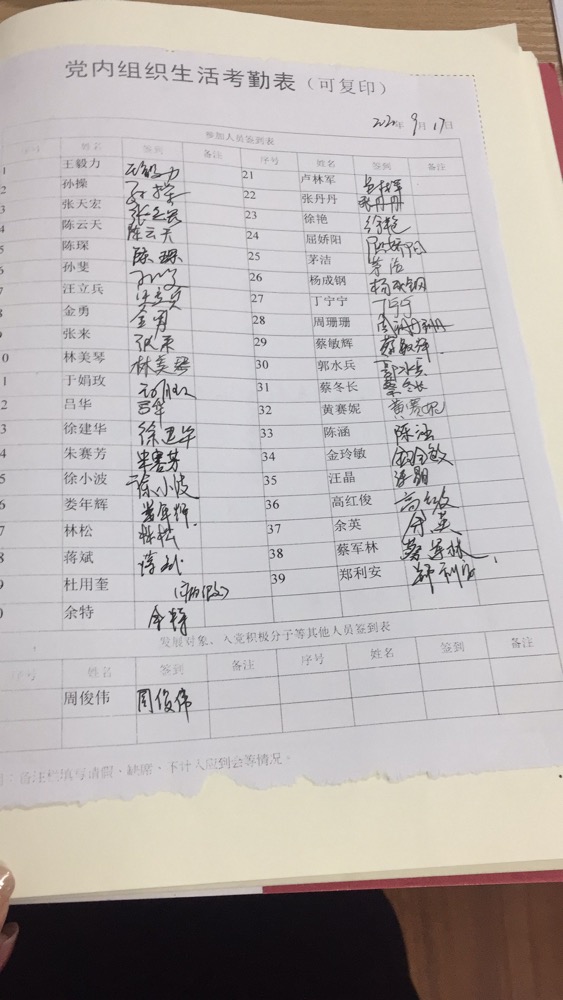 党内组织生活考勤表（可复印）
年 9 月 17 日
参加人员签到表
序号 姓名 签到 备注 序号 姓名 签到 备注
1 王毅力 王毅力 21 卢林军 卢林军
2 孙操 孙操 22 张丹丹 张丹丹
3 张天宏 张天宏 23 徐艳 徐艳
4 陈云天 陈云天 24 屈娇阳 屈娇阳
5 陈琛 陈琛 25 茅洁 茅洁
6 孙斐 26 杨成钢 杨成钢
7 汪立兵 27 丁宁宁 丁宁宁
8 金勇 金勇 28 周珊珊 周珊珊
9 张来 张来 29 蔡敏辉 蔡敏辉
0 林美琴 林美琴 30 郭水兵 郭水兵
1 于娟玫 31 蔡冬长 蔡冬长
2 吕华 吕华 32 黄赛妮 黄赛妮
3 徐建华 徐建华 33 陈涵 陈涵
4 朱赛芳 朱赛芳 34 金玲敏 金玲敏
5 徐小波 徐小波 35 汪晶 汪晶
6 娄年辉 娄年辉 36 高红俊 高红俊
7 林松 林松 37 余英 余英
8 蒋斌 蒋斌 38 蔡军林 蔡军林
9 杜用奎 39 郑利安 郑利安
0 余特 余特
发展对象、入党积极分子等其他人员签到表
序号 姓名 签到 备注 序号 姓名 签到 备注
周俊伟 周俊伟
：备注栏填写请假、缺席、不计入应到会等情况。